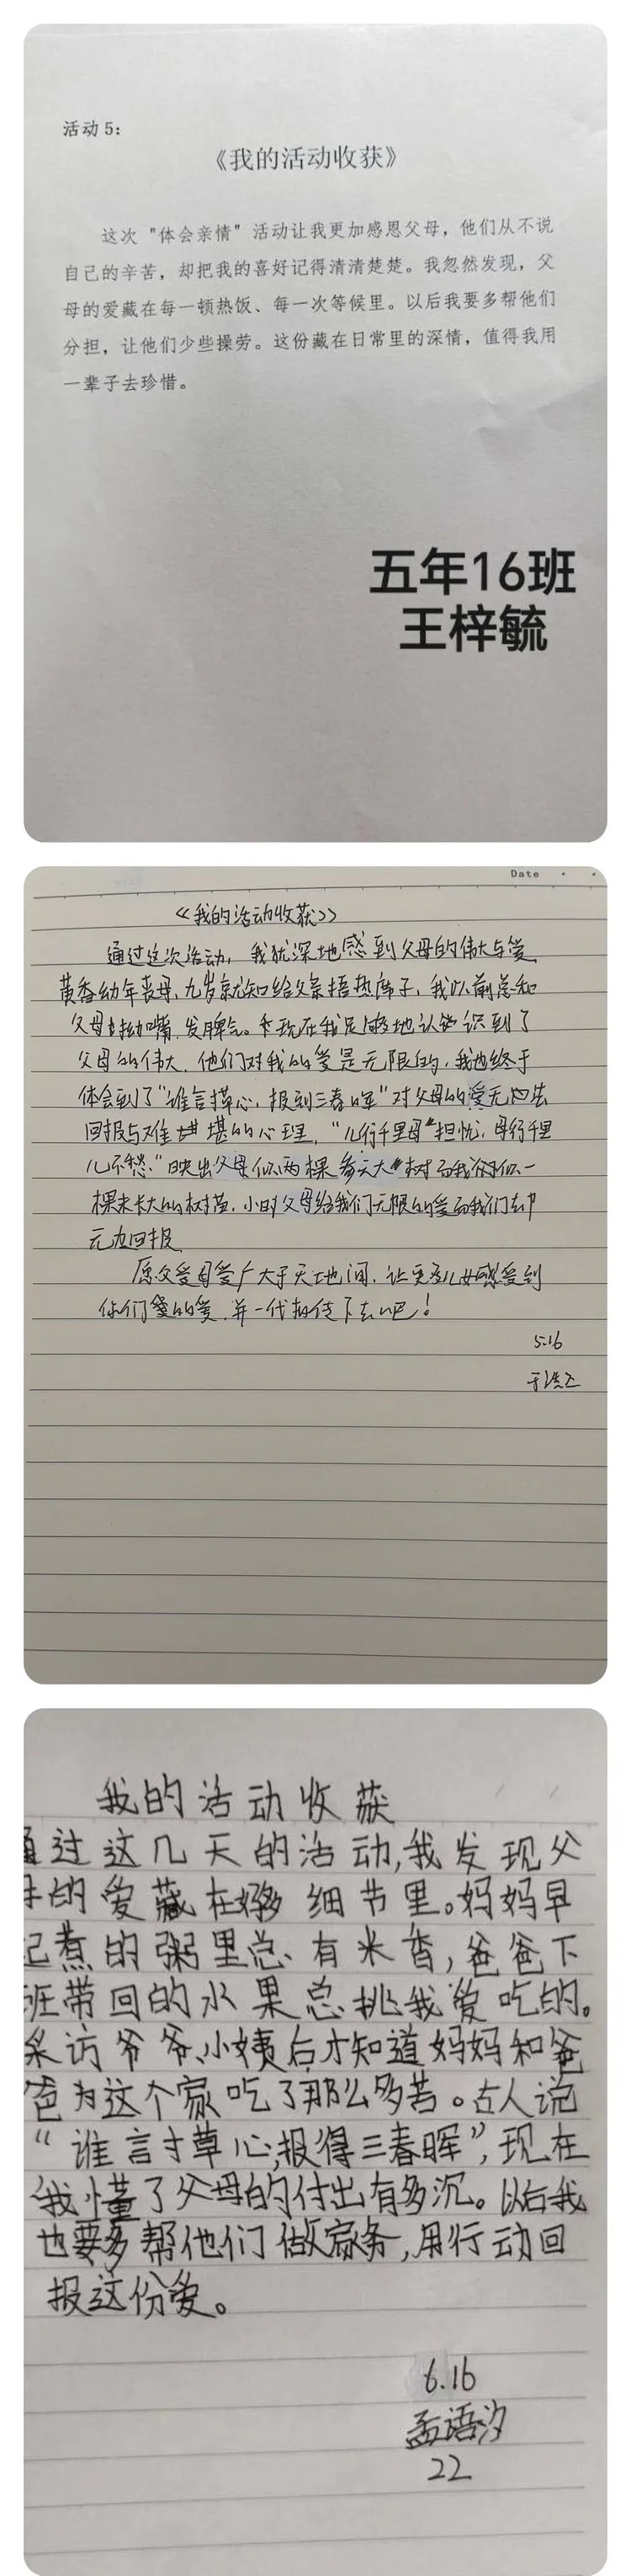 活动5：
《我的活动收获》
这次"体会亲情"活动让我更加感恩父母，他们从不说
自己的辛苦，却把我的喜好记得清清楚楚。我忽然发现，父
母的爱藏在每一顿热饭、每一次等候里。以后我要多帮他们
分担，让他们少些操劳。这份藏在日常里的深情，值得我用
一辈子去珍惜。
五年16班
王梓毓
Date
《我的活动收获》
通过这次活动，我深地感到父母的伟大与爱
黄香幼年丧母，九岁就知给父亲捂热席子，我以前总和
父母拗嘴，发脾气。现在我足够地认识到了
父母的伟大，他们对我的爱是无限的，我也终于
体会到了"谁言草心，报到三春晖"对父母的爱无法
回报与难堪的心理，"儿行千里母担忧，母行千里
儿不愁"映出父母似两棵参天大树而我们似一
棵未长大的树苗，小时父母给我们无限的爱而我们却
无力回报
愿父爱母爱广大于天地间，让更多儿女感受到
你们的爱，并一代代传下去吧！
5.16
于
我的活动收获
过这几天的活动，我发现父
的爱藏在好多细节里。妈妈早
煮的粥里总有米香，爸爸下
班带回的水果总挑我爱吃的。
采访爷爷、小姨后才知道妈妈和爸
爸为这个家吃了那么多苦。古人说
"谁言寸草心，报得三春晖"，现在
我懂了父母的付出有多沉。以后我
也要多帮他们做家务，用行动回
报这份爱。
6.16
孟语汐
22